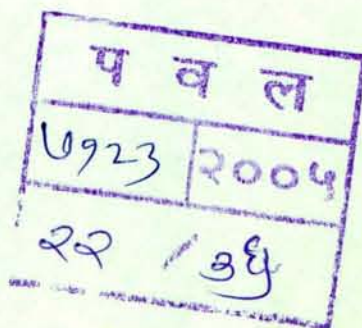 प व ल
७१२३ २००५
२२ / ३६